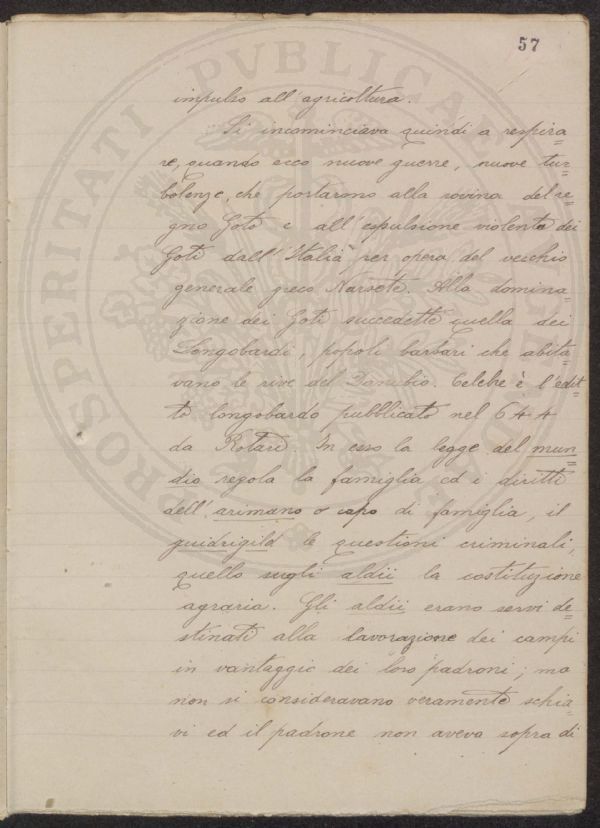 57
PROSPERITATI PVBLICAE AVGENDAE
impulso all'agricoltura.
Si incominciava quindi a respira=
re, quando ecco nuove guerre, nuove tur=
bolenze, che portarono alla rovina del re=
gno Goto e all'espulsione violenta dei
Goti dall'Italia per opera del vecchio
generale greco Narsete. Alla domina=
zione dei Goti succedette quella dei
Longobardi, popoli barbari che abita=
vano le rive del Danubio. Celebre è l'edit=
to longobardo pubblicato nel 644
da Rotari. In esso la legge del mun=
dio regola la famiglia ed i diritti
dell'arimano o capo di famiglia, il
guidrigild le questioni criminali,
quello sugli aldii la costituzione
agraria. Gli aldii erano servi de=
stinati alla lavorazione dei campi
in vantaggio dei loro padroni; ma
non si consideravano veramente schia=
vi ed il padrone non aveva sopra di